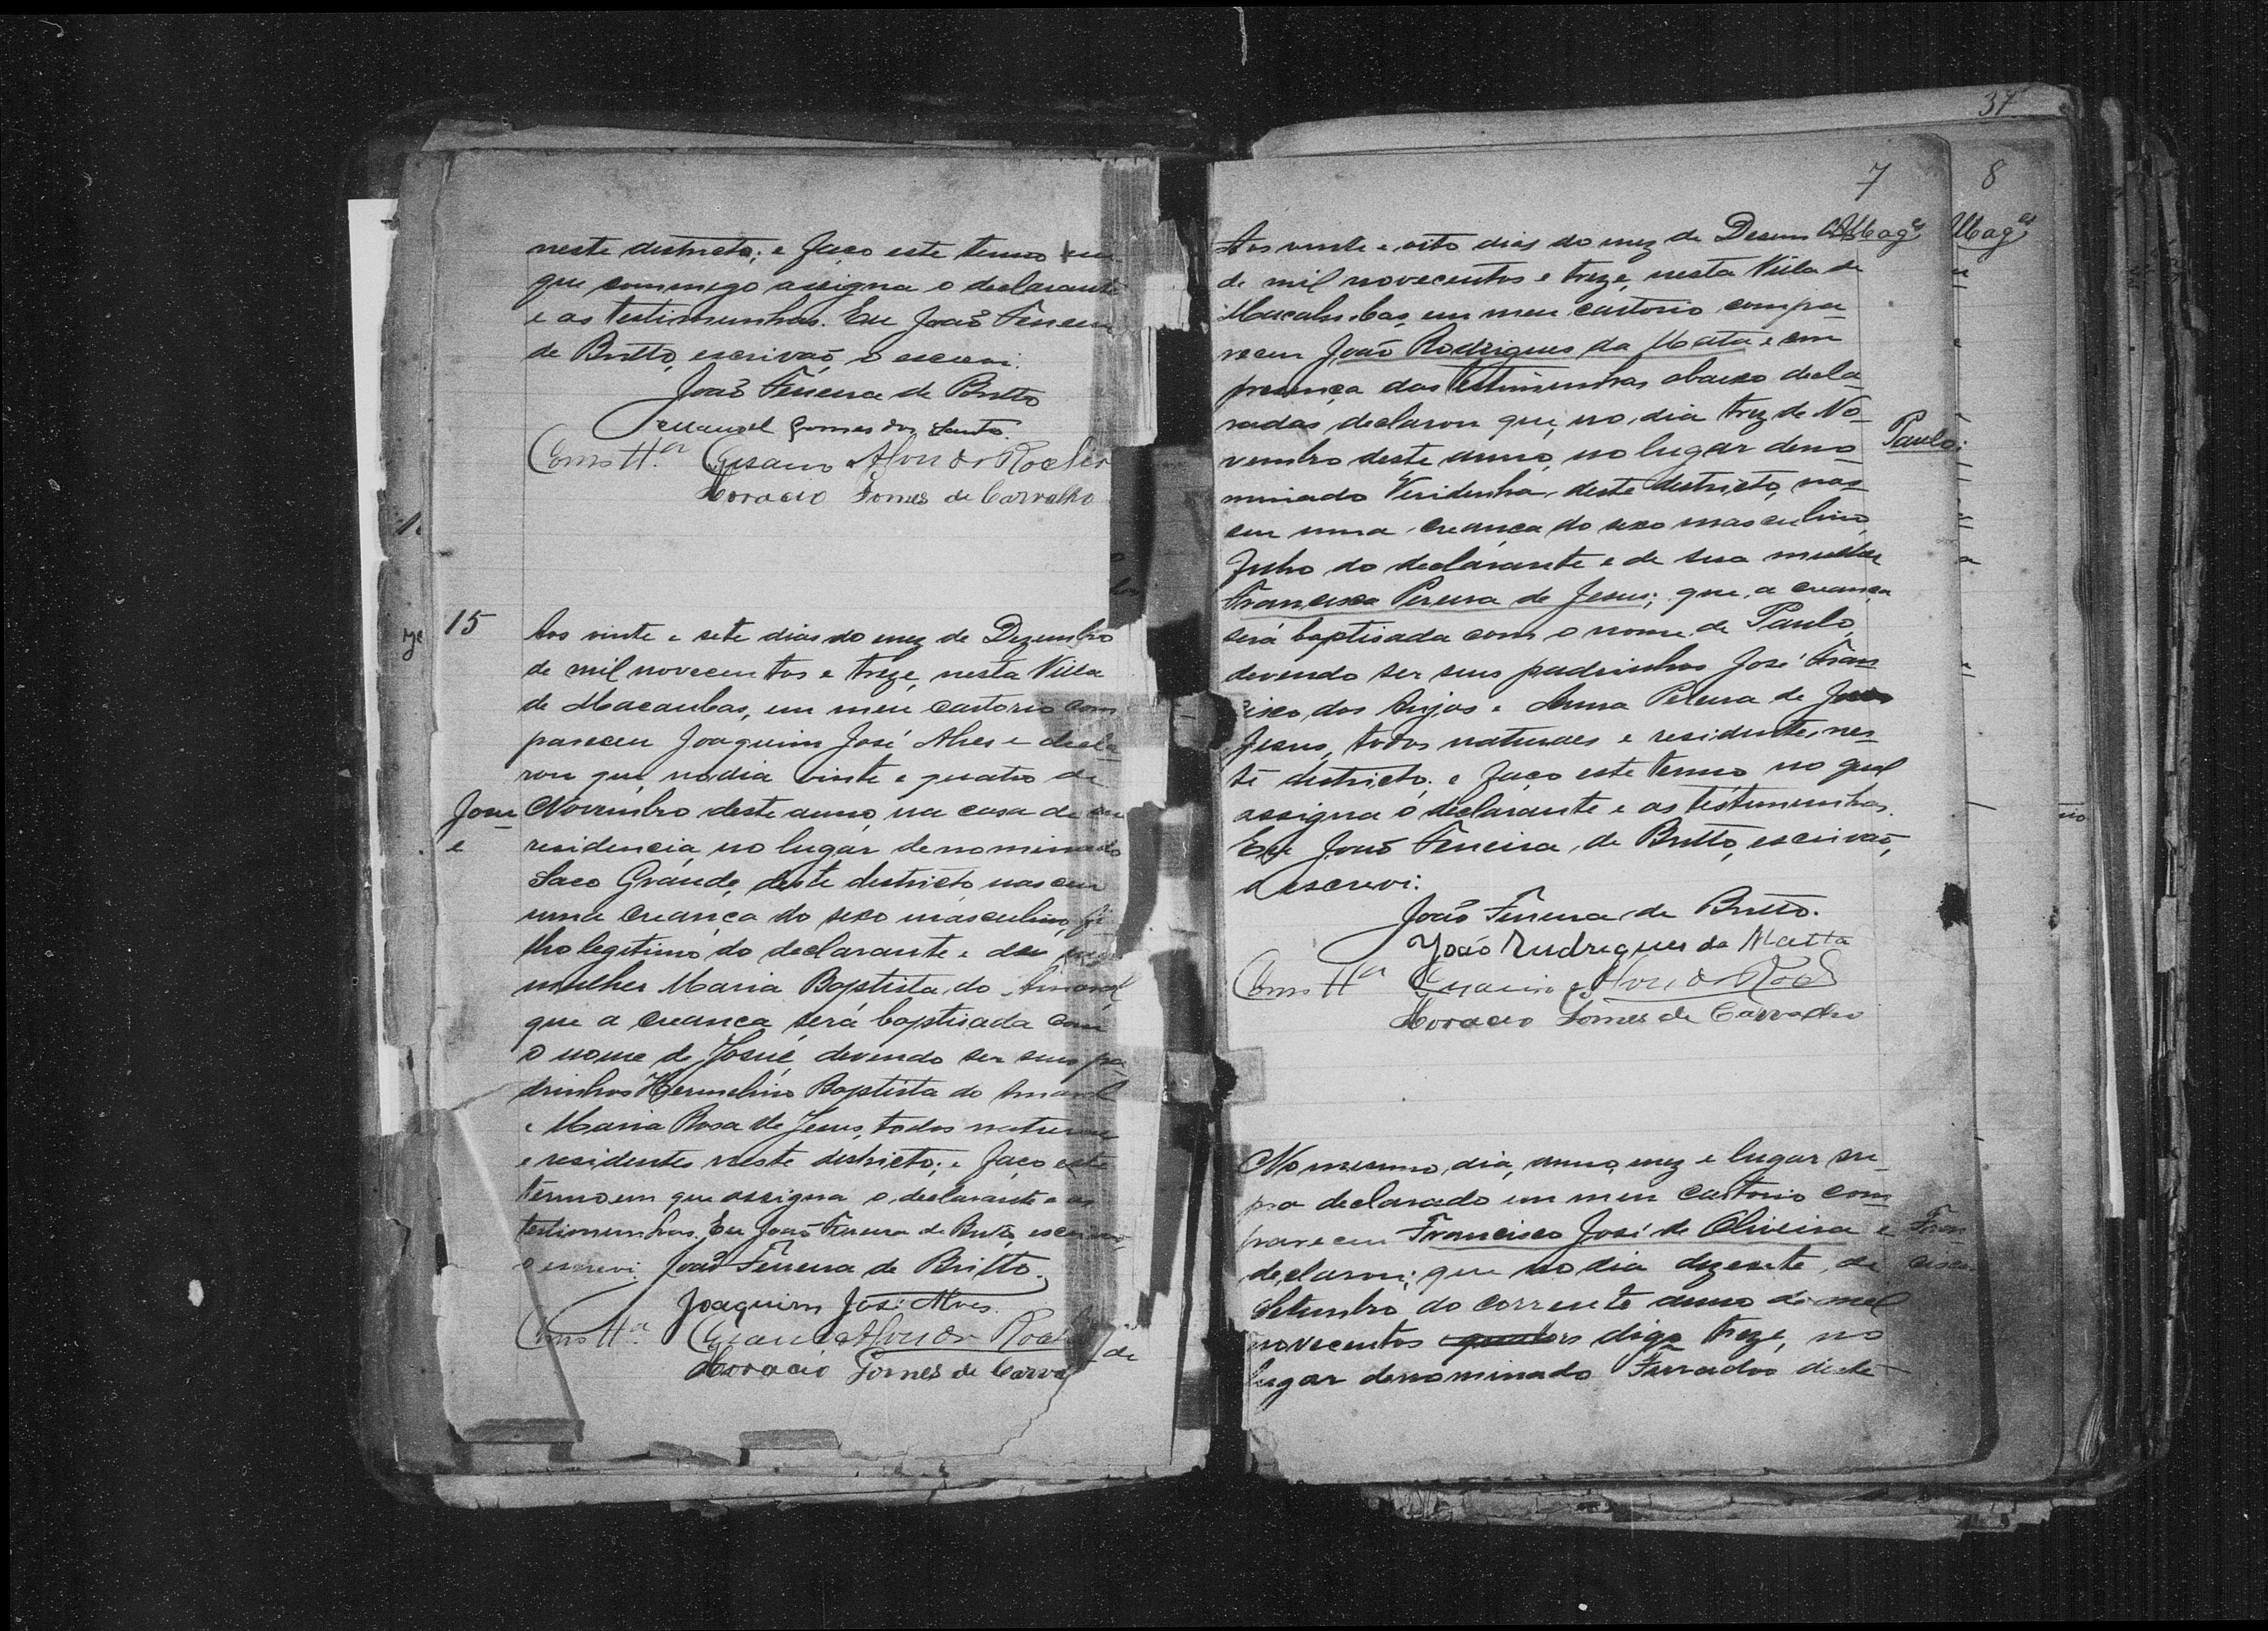 neste districto; e faço este termo em
que commigo assigna o declarante
e as testimunhas. Eu João Ferreira
de Britto, escrivaõ, o escrevi.
João Ferreira de Britto
Manoel Gomes dos Santos.
Como tt.as Alves da Rocha
Horacio Gomes de Carvalho
15
Aos vinte e sete dias do mez de Dezembro
de mil novecentos e treze, nesta Villa
de Macaubas, em meu cartorio com
pareceu Joaquim José Alves e decla
rou que, no dia vinte e quatro de
Josu
é
Novembro deste anno, na casa de su
residencia, no lugar denominado
Saco Grande, deste districto nasceu
uma creança do sexo masculino, fi
lho legitimo do declarante e de sua
mulher Maria Baptista do Amaral,
que a creança será baptisada com
o nome de Josué, devendo ser seus pa
drinhos Hermelino Baptista do Amaral
e Maria Rosa de Jesus, todos naturaes
e residentes neste districto; e faço este
termo em que assigna o declarante e as
testimunhas. Eu João Ferreira de Britto, escrivão,
o escrevi. João Ferreira de Britto.
Joaquim José Alves.
Como tt.as Alves da Rocha
Horacio Gomes de Carval
de
37
7
8
Mag.es
Mag.es
Aos vinte e oito dias do mez de Desem
de mil novecentos e treze, nesta Villa de
Macahubas, em meu cartorio compa
receu João Rodrigues da Mata e em
presença das testimunhas abaixo decla
radas, declarou que, no dia trez de No
Paulo
vembro deste anno, no lugar deno
minado deste districto, nas
ceu uma creança do sexo masculino,
filho do declarante e de sua mulher
Francisca Pereira de Jesus; que a creança
será baptisada com o nome de Paulo,
devendo ser seus padrinhos José Fran
cisco dos Anjos e Anna Pereira de
Jesus, todos naturaes e residentes nes
te districto; e faço este termo no qual
assigna o declarante e as testimunhas.
Eu João Ferreira de Britto, escrivaõ,
o escrevi.
João Ferreira de Britto.
João Rudrigues da Matta
Como tt.as Alves da Roch
Horacio Gomes de Carvalho
No mesmo dia, anno, mez e lugar su
pra declarado em meu cartorio com
pareceu Francisco José de Oliveira e
Fran
declarou; que no dia dezesete de
cisca
Setembro do corrente anno de mil
novecentos digo treze, no
lugar denominado Ferrador deste